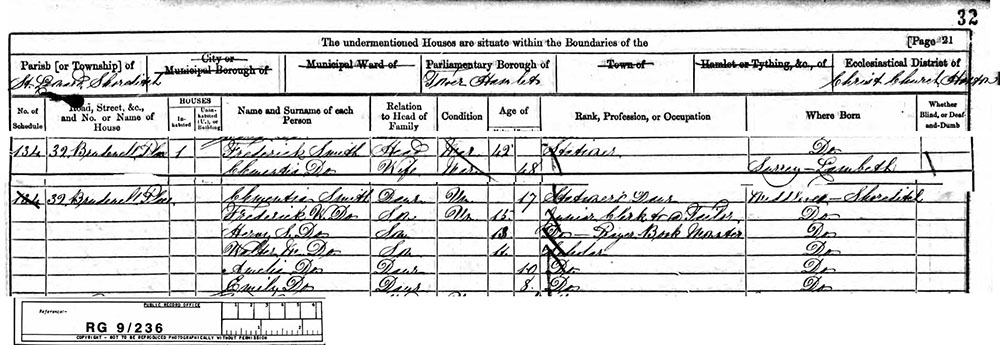 32
The undermentioned Houses are situate within the Boundaries of the [Page 21
Parish [or Township] of City or Municipal Borough of Municipal Ward of Parliamentary Borough of Town of Hamlet or Tything, &c., of Ecclesiastical District of
Shoreditch Tower Hamlets Christ Church
No. of Schedule Road, Street, &c., and No. or Name of House HOUSES Inhabited Uninhabited (U.), or Building Name and Surname of each Person Relation to Head of Family Condition Age of Rank, Profession, or Occupation Where Born Whether Blind, or Deaf-and-Dumb
134 32 1 Frederick Smith Head Mar 42 Do
Do Wife Mar 48 Surrey - Lambeth
134 32 Smith Daur Un 17 Daur Middlesex - Shoreditch
Frederick W. Do Son Un 15 Junior Clerk to a Tailor Do
Do Son 13 Do Do
Walter Do Son 11 Scholar Do
Amelia Do Daur 10 Do Do
Emily Do Daur 8 Do Do
PUBLIC RECORD OFFICE
1 2 3 4 5 6
Reference:-
1 2
RG 9/236
COPYRIGHT - NOT TO BE REPRODUCED PHOTOGRAPHICALLY WITHOUT PERMISSION